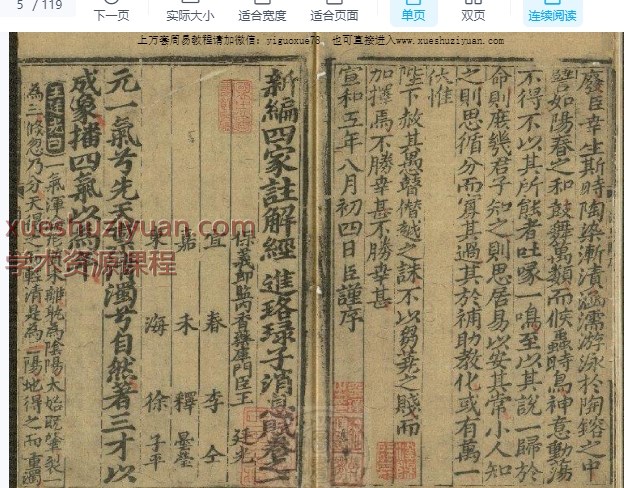 5 / 119
下一页
实际大小
适合宽度
适合页面
单页
双页
连续阅读
上万套周易教程请加微信:yiguoxue78,也可直接进入www.xueshuziyuan.com
廢臣幸生斯時陶染漸漬涵濡游泳於陶鎔之中
譬如陽春之和鼓舞萬類而候蟲時鳥神意動蕩
不得不以其所能者吐喙一鳴至以其說一歸於
命則庶幾君子知之則思居易以安其常小人知
之則思循分而寡其過其於補助教化或有萬一
伏惟
陛下赦其愚瞽僭越之誅不以芻蕘之賤而
加擇焉不勝幸甚不勝幸甚
宣和五年八月初四日臣謹序
新編四家註解經進珞琭子消息賦卷之一
保義郎監内香藥庫門臣王 廷光
宜春 李仝
嘉禾 釋曇瑩
東海 徐子平
元一氣兮先天稟清濁兮自然著三才以
成象播四氣以為年
王廷光曰一氣渾
為二候忽乃分天得之而輕清是為陽地得之而重濁
xueshuziyuan.com
学术资源课程